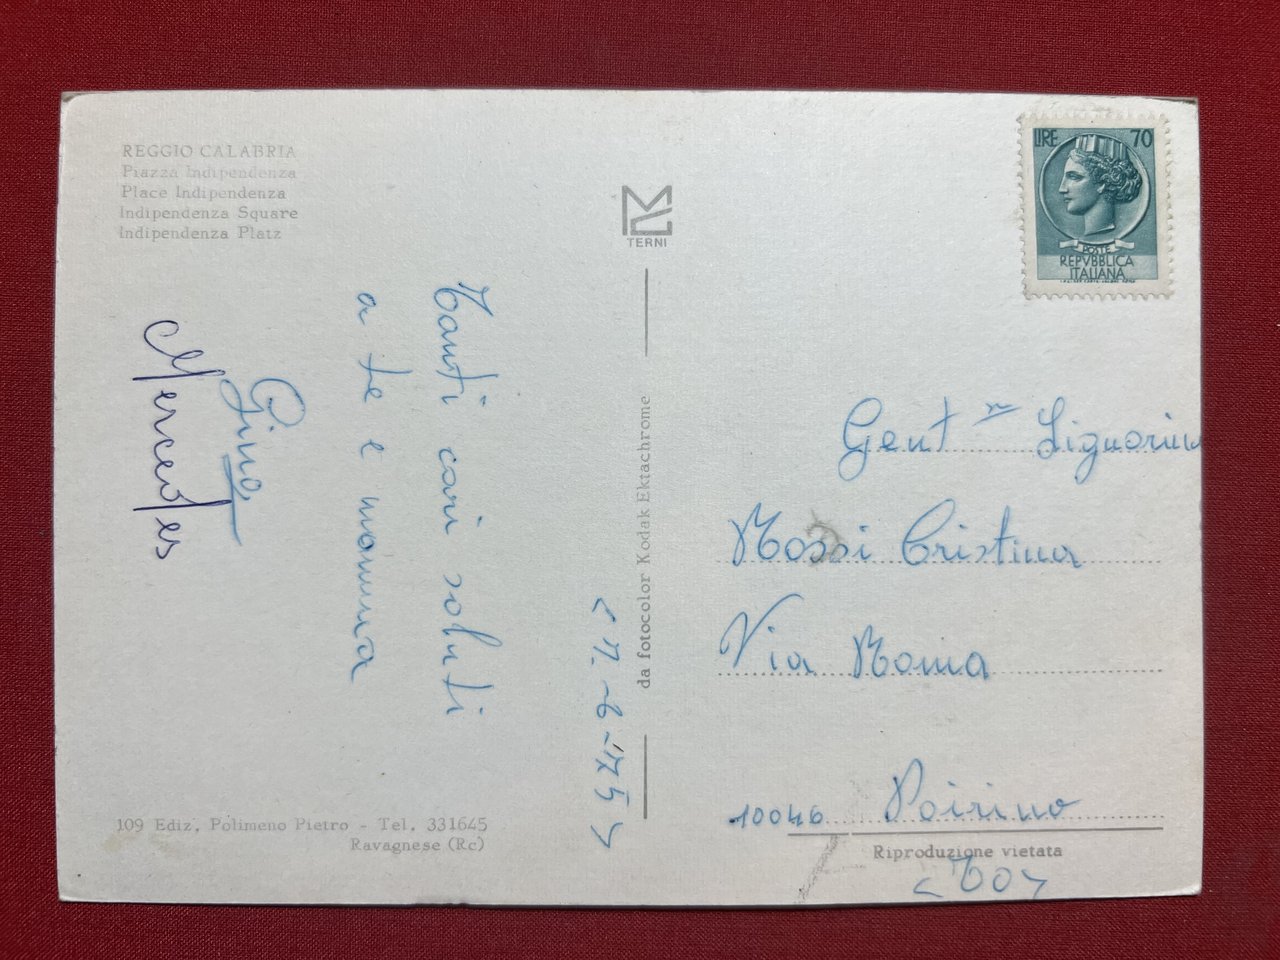 REGGIO CALABRIA
Piazza Indipendenza
Place Indipendenza
Indipendenza Square
Indipendenza Platz
TERNI
LIRE 70
POSTE
REPVBBLICA
ITALIANA
Tanti cari saluti
a te e mamma
Gino
Mercedes
da fotocolor Kodak Ektachrome
Gent ma Signorina
Rossi Cristina
Via Roma
10046 Poirino
(TO)
Riproduzione vietata
109 Ediz. Polimeno Pietro - Tel. 331645
Ravagnese (Rc)